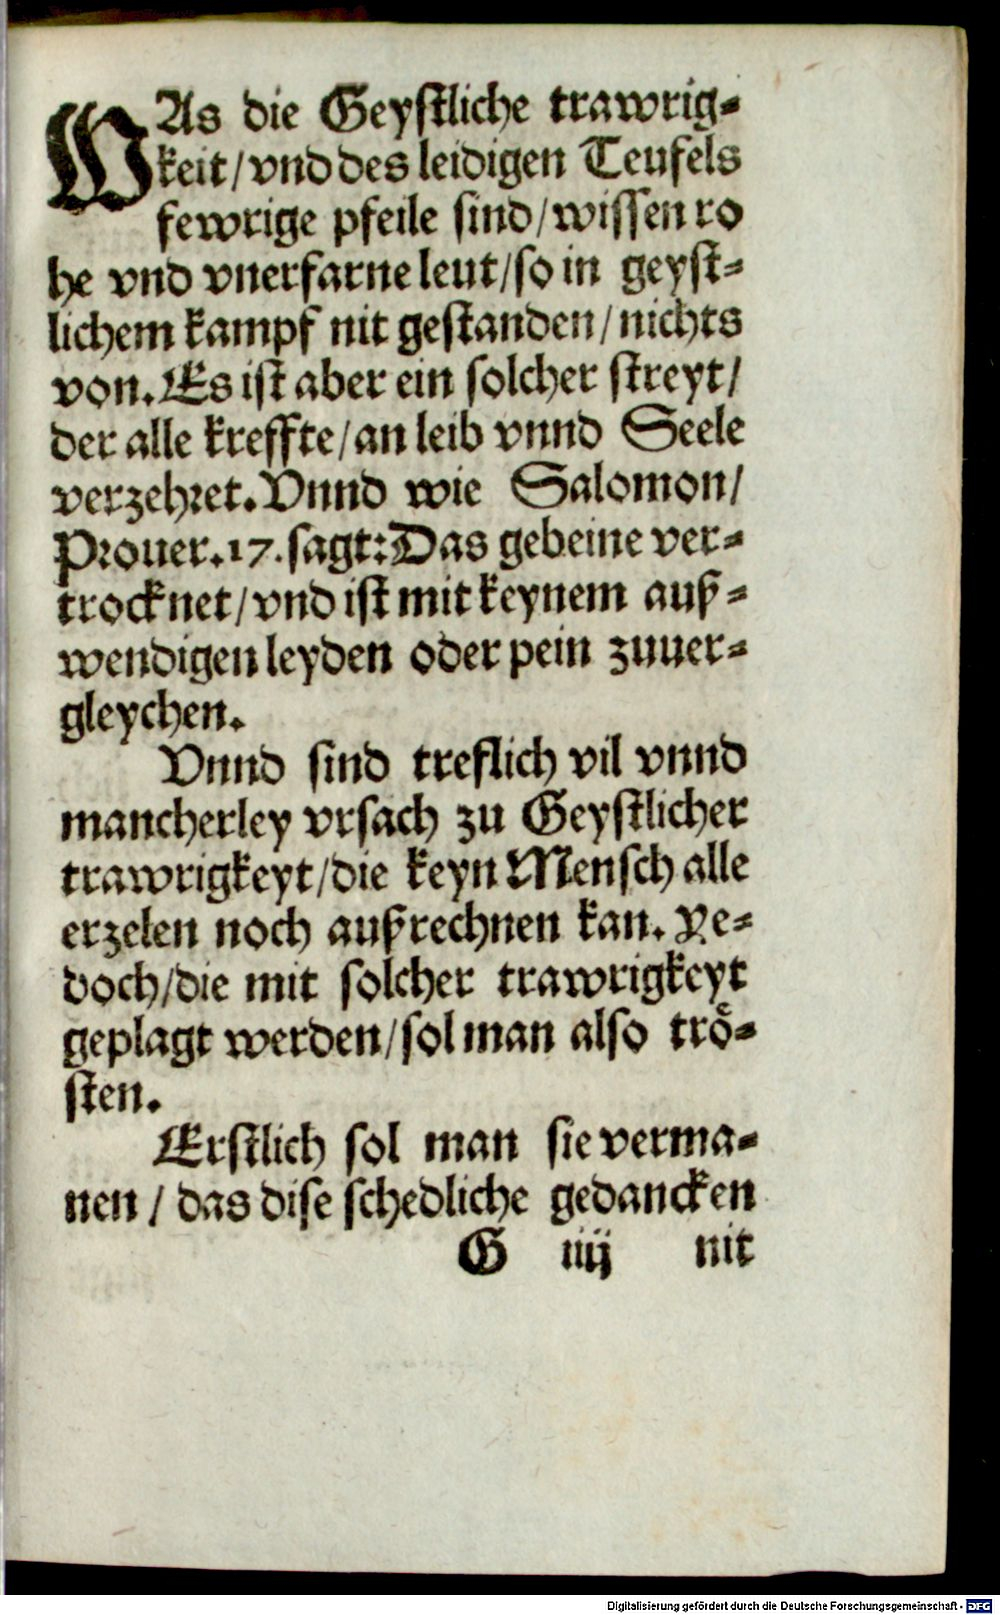 WAs die Geyſtliche trawrig⸗
keit/vnd des leidigen Teufels
fewrige pfeile ſind/wiſſen ro
he vnd vnerfarne leut/ſo in geyſt⸗
lichem kampf nit geſtanden/nichts
von. Es iſt aber ein ſolcher ſtreyt/
der alle kreffte/an leib vnnd Seele
verzehret. Vnnd wie Salomon/
Prouer. 17. ſagt: Das gebeine ver⸗
trocknet/vnd iſt mit keynem auß⸗
wendigen leyden oder pein zuuer⸗
gleychen.
Vnnd ſind treflich vil vnnd
mancherley vrſach zu Geyſtlicher
trawrigkeyt/die keyn Menſch alle
erzelen noch außrechnen kan. Ye⸗
doch/die mit ſolcher trawrigkeyt
geplagt werden/ſol man alſo troͤ⸗
ſten.
Erſtlich ſol man ſie verma⸗
nen / das diſe ſchedliche gedancken
G iiij nit
Digitalisierung gefördert durch die Deutsche Forschungsgemeinschaft - DFG